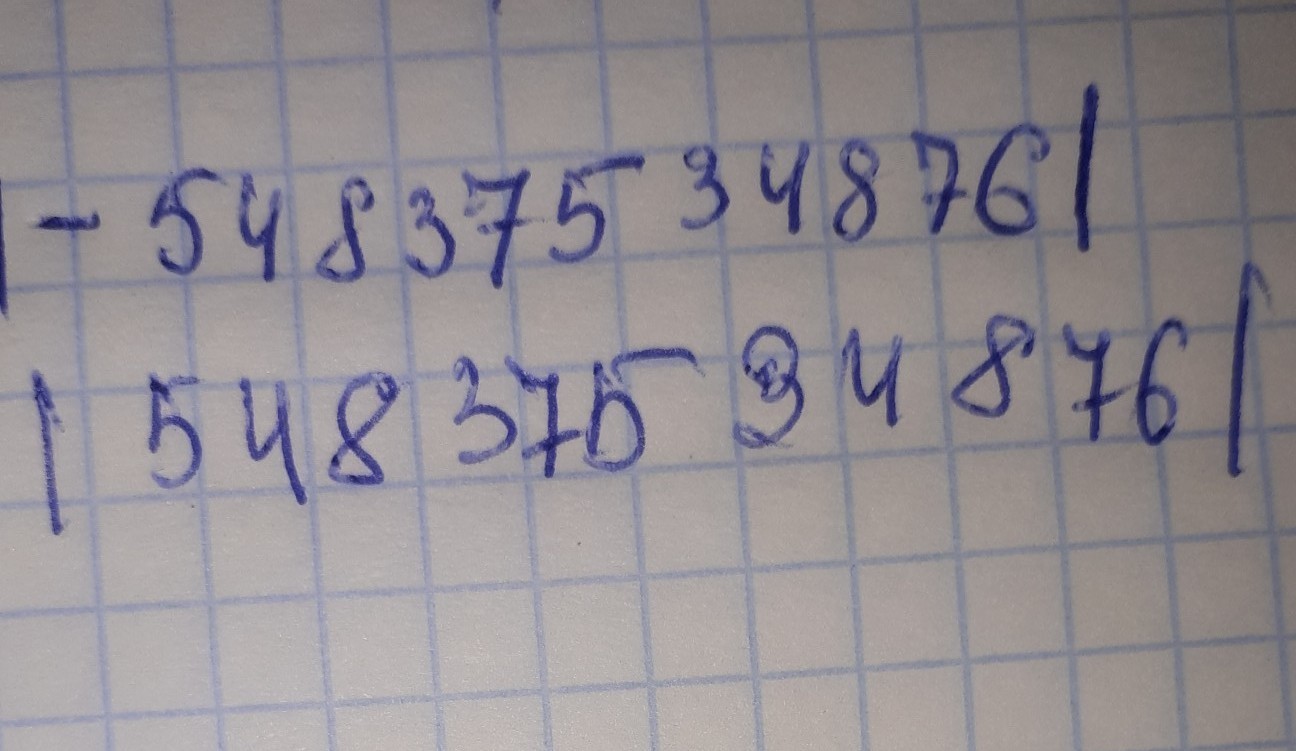 |- 548375 34876|
| 548 375 34 876|